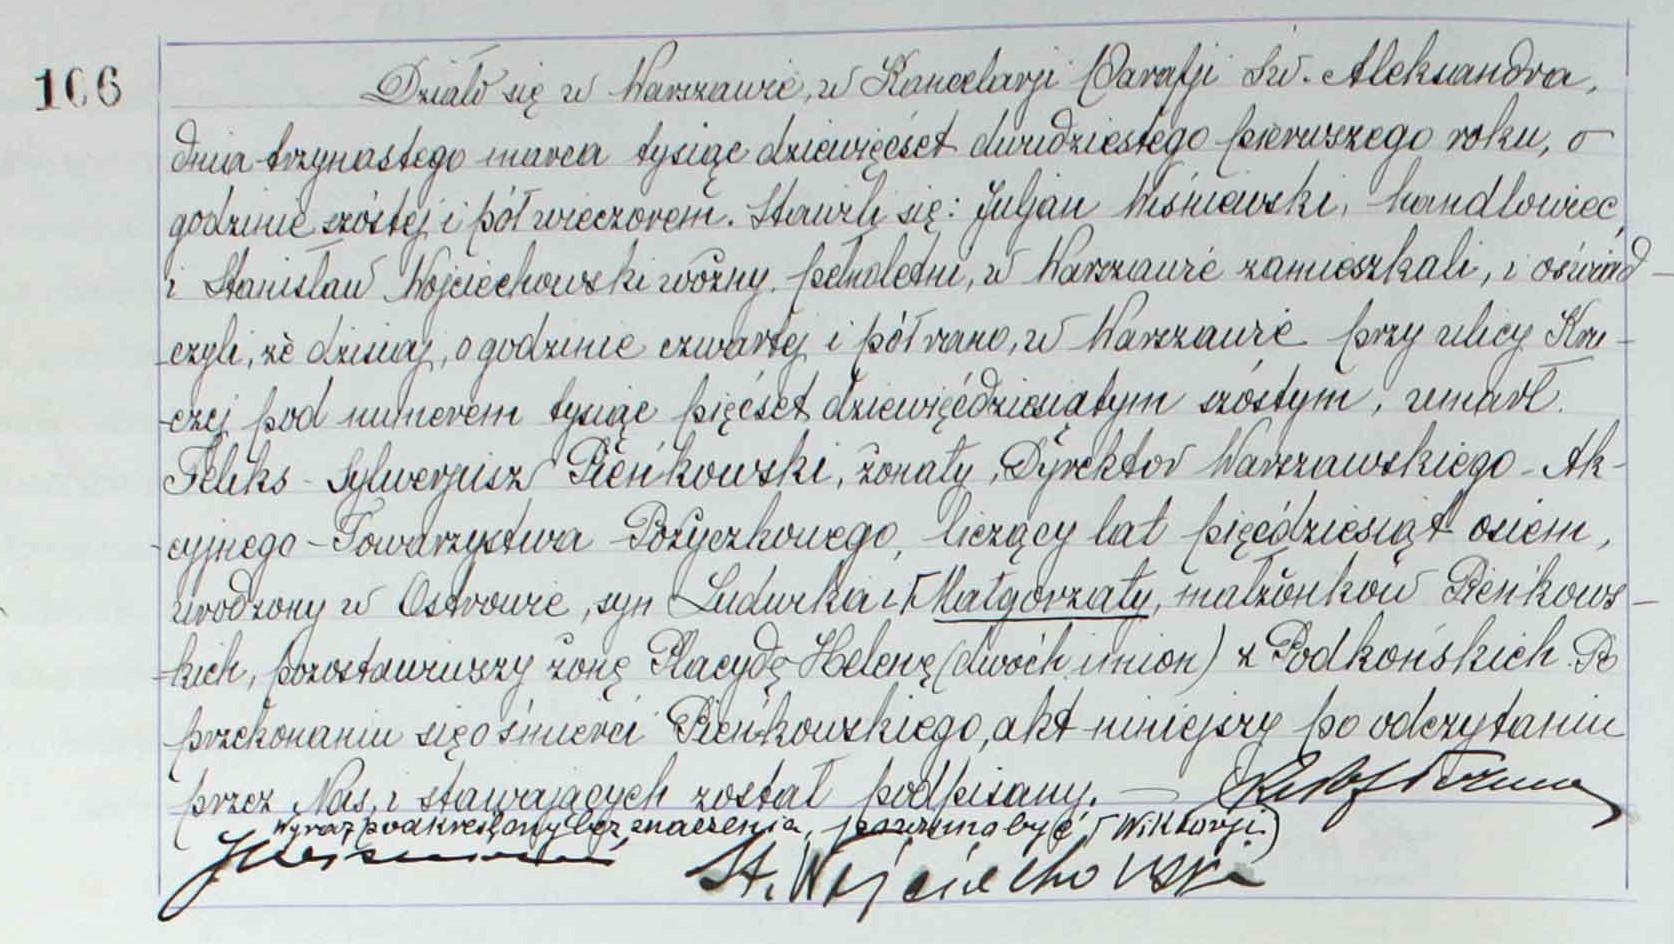 106
Działo się w Warszawie, w Kancelarji Parafji Św. Aleksandra,
dnia trzynastego marca tysiąc dziewięćset dwudziestego pierwszego roku, o
godzinie szóstej i pół wieczorem. Stawili się: Juljan Wiśniewski, handlowiec,
i Stanisław Wojciechowski woźny, pełnoletni, w Warszawie zamieszkali, i oświad-
czyli, że dzisiaj, o godzinie czwartej i pół rano, w Warszawie przy ulicy Kru-
czej pod numerem tysiąc pięćset dziewięćdziesiątym szóstym, umarł
Feliks-Sylwerjusz Pieńkowski, żonaty, Dyrektor Warszawskiego-Ak-
cyjnego-Towarzystwa Pożyczkowego, liczący lat pięćdziesiąt osiem,
urodzony w Ostrowie, syn Ludwika i Małgorzaty, małżonków Pieńkows-
kich, pozostawiwszy żonę Placydę Helenę (dwóch imion) z Podkońskich. Po
przekonaniu się o śmierci Pieńkowskiego, akt niniejszy po odczytaniu
przez Nas i stawających został podpisany.
Wyraz podkreślony bez znaczenia, powinno być "Wiktorji")
St. Wojciechowski